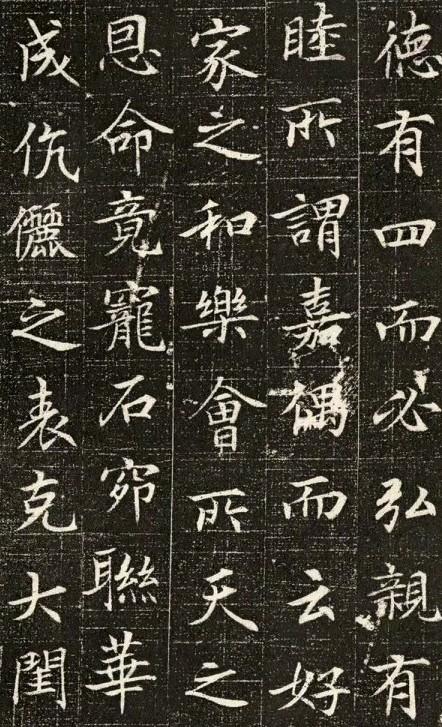 徳有四而必弘親有
睦所謂嘉偶而云好
家之和樂會所天之
恩命竟寵石窌聯華
成伉儷之表克大閨